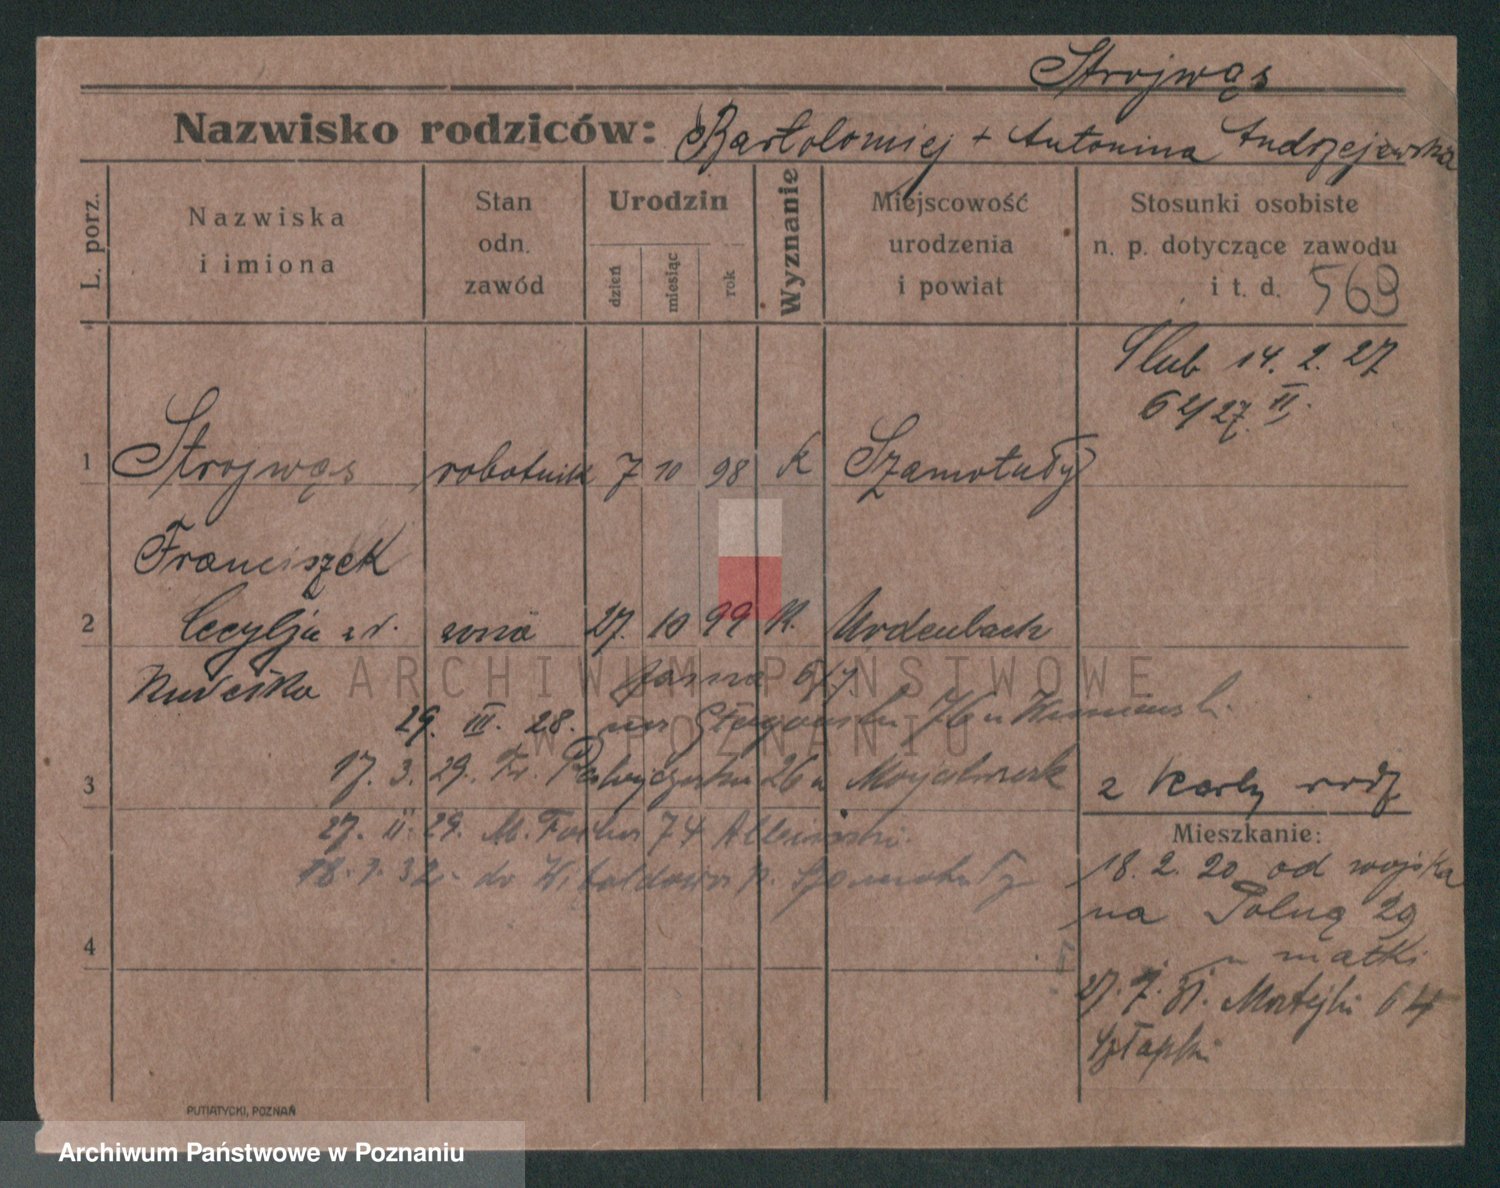 Strojwąs
Nazwisko rodziców: Bartołomiej + Antonina Andrzejewska
L. porz.
Nazwiska
i imiona
Stan
odn.
zawód
Urodzin
dzień
miesiąc
rok
Wyznanie
Miejscowość
urodzenia
i powiat
Stosunki osobiste
n. p. dotyczące zawodu
i t. d. 569
Ślub 14. 2. 27
62/27. II.
1 Strojwąs robotnik 7 10 98 K Szamotuły
Franciszek
2 Cecylja żona 27. 10 99 K. Urdenbach
Jasna 6/7
29. III. 28. 76 u
3 17. 3. 29. Fr. 26 u
27. II. 29. M. 74
18. 7. 32. do Witoldowa p. Szamotuły
4
z Karty rodz
Mieszkanie:
18. 2. 20 od wojska
na Polną 29
u matki
27. 7. 31. Matejki 64
PUTIATYCKI, POZNAŃ
ARCHIWUM PAŃSTWOWE
W POZNANIU
Archiwum Państwowe w Poznaniu